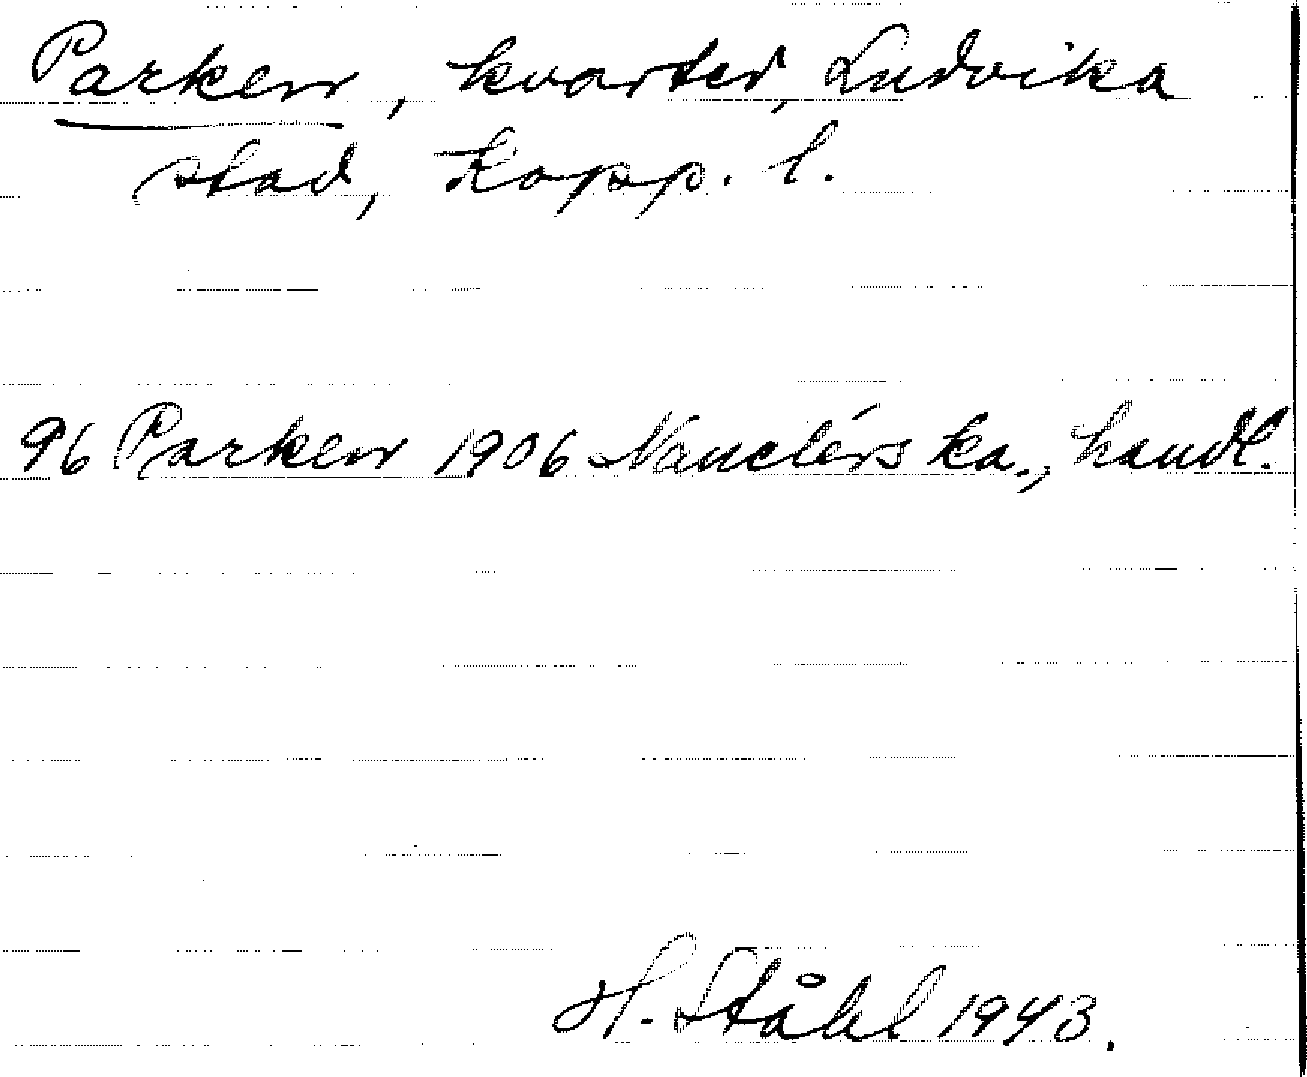 Parken, kvarter, Ludvika
stad, Kopp. l.
96 Parken 1906 Nanclérs ka., handl.
H. Ståhl 1943.